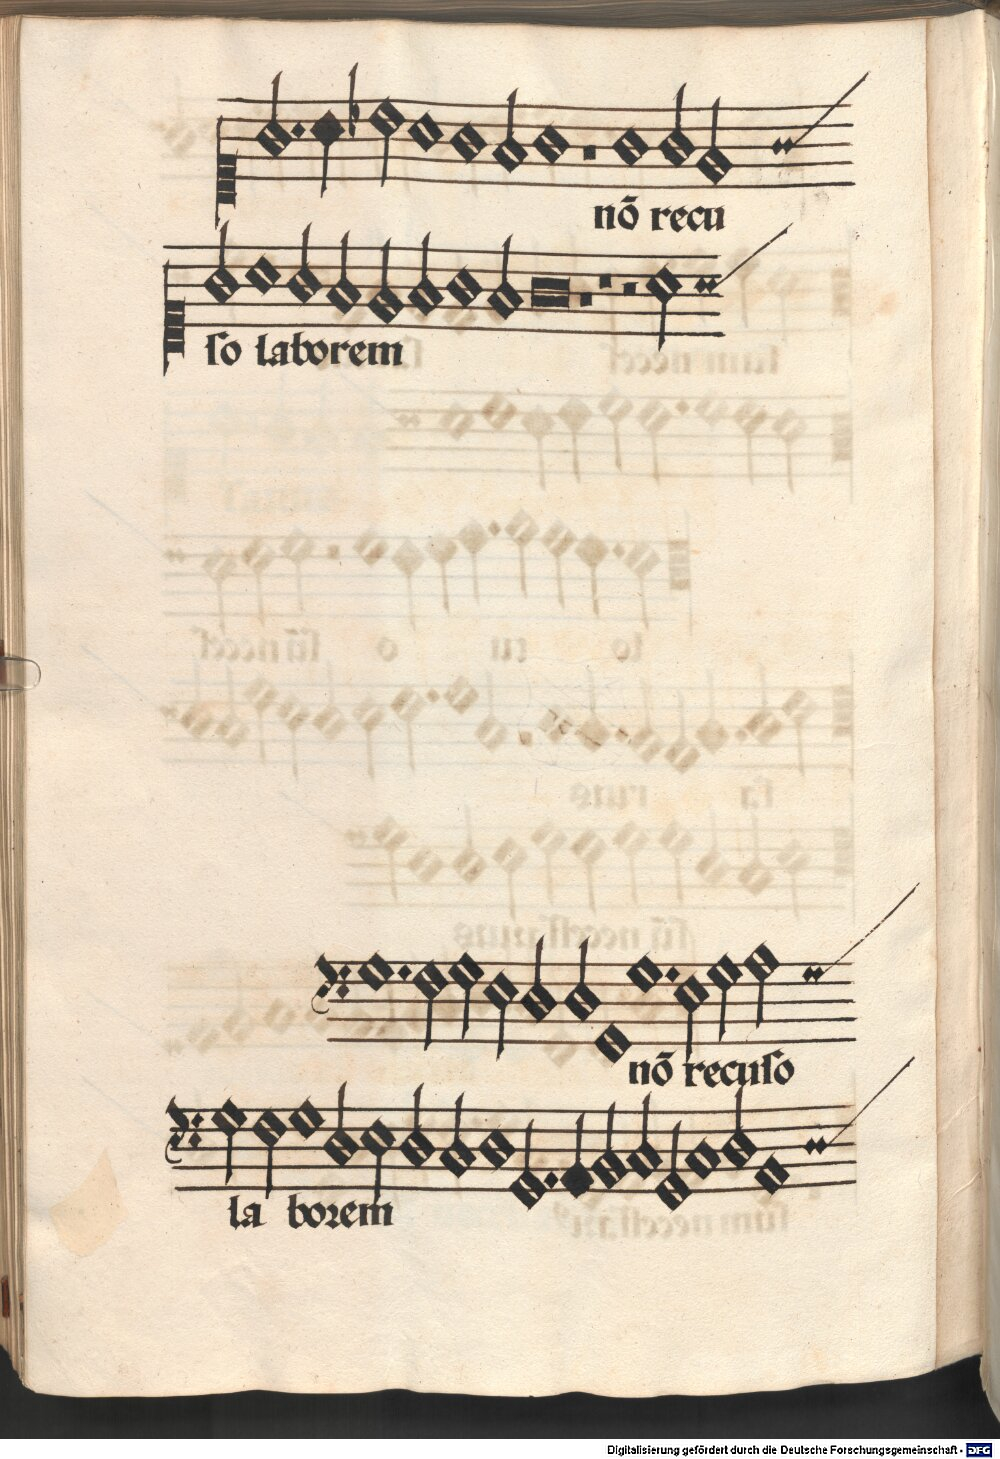 nō recu
ſo laborem
nō recuſo
la borem
Digitalisierung gefördert durch die Deutsche Forschungsgemeinschaft - DFG